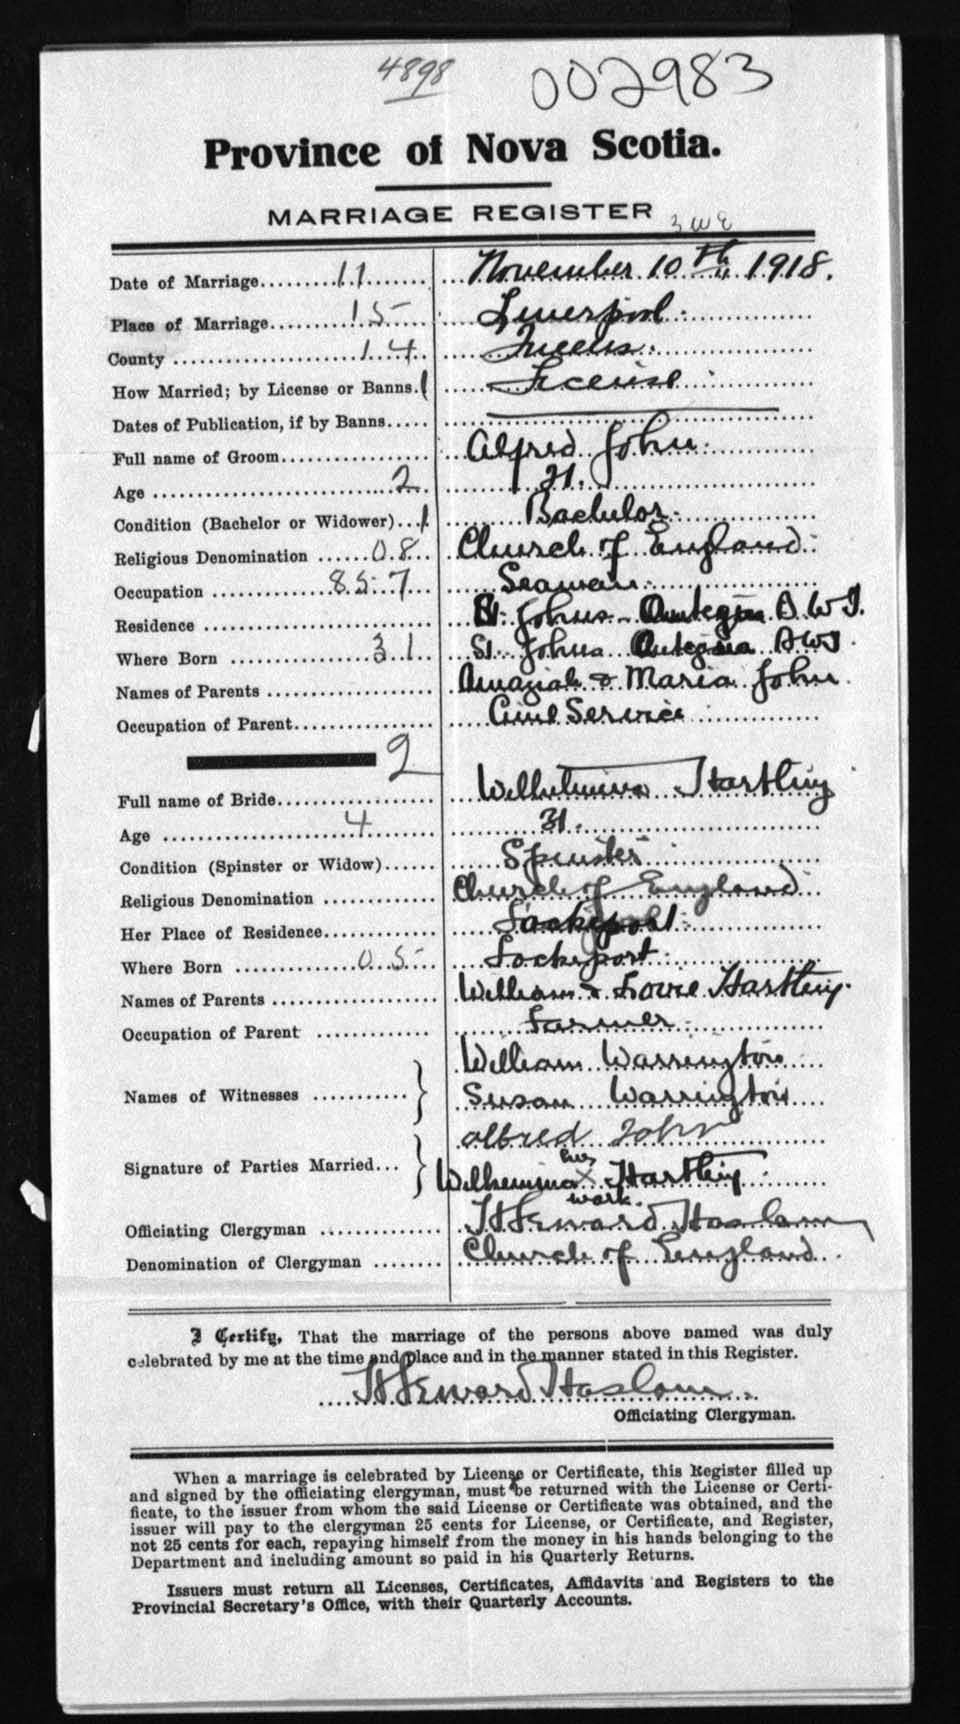 4898 002983
Province of Nova Scotia.
MARRIAGE REGISTER
3 W E
Date of Marriage 11 November 10th 1918.
Place of Marriage 15 Liverpool
County 14 Queens
How Married; by License or Banns. 1 License
Dates of Publication, if by Banns
Full name of Groom Alfred John
Age 2
Condition (Bachelor or Widower) 1 Bachelor
Religious Denomination 08 Church of England
Occupation 857 Seaman
Residence St. Johns Antegua B W I.
Where Born 31 St. Johns Antegua B W I.
Names of Parents Amaziah & Maria John
Occupation of Parent Civil Service
2
Full name of Bride Wilhelmina Hartling
Age 4 31.
Condition (Spinster or Widow) Spinster
Religious Denomination Church of England
Her Place of Residence Lockeport
Where Born 05 Lockeport
Names of Parents William & Hartling
Occupation of Parent Farmer
Names of Witnesses William Warrington
Susan Warrington
Signature of Parties Married Alfred John
her
Wilhemina X Hartling
mark.
Officiating Clergyman H Seward Haslam
Denomination of Clergyman Church of England
I Certify, That the marriage of the persons above named was duly
celebrated by me at the time and place and in the manner stated in this Register.
H Seward Haslam
Officiating Clergyman.
When a marriage is celebrated by License or Certificate, this Register filled up
and signed by the officiating clergyman, must be returned with the License or Certi-
ficate, to the issuer from whom the said License or Certificate was obtained, and the
issuer will pay to the clergyman 25 cents for License, or Certificate, and Register,
not 25 cents for each, repaying himself from the money in his hands belonging to the
Department and including amount so paid in his Quarterly Returns.
Issuers must return all Licenses, Certificates, Affidavits and Registers to the
Provincial Secretary's Office, with their Quarterly Accounts.